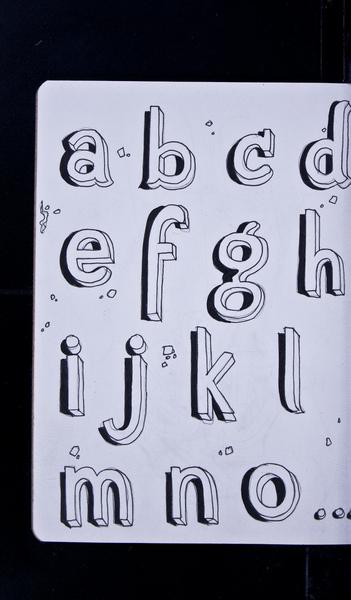 a b c d
e f g h
i j k l
m n o ...